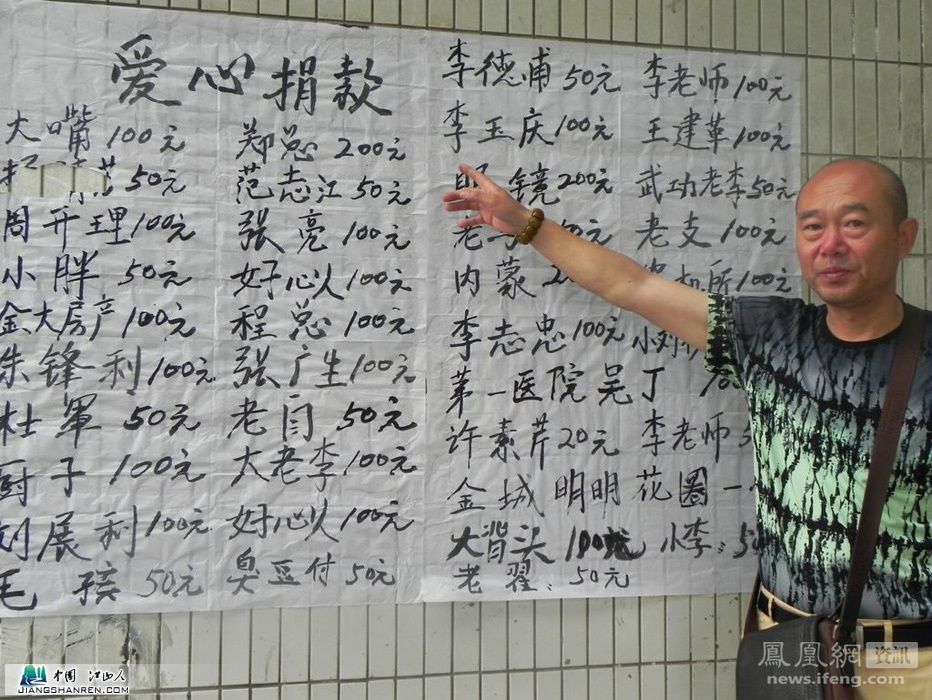 爱心捐款
大嘴 100元
50元
周开理 100元
小胖 50元
金大房产 100元
朱锋利 100元
杜军 50元
厨子 100元
刘展利 100元
毛孩 50元
郑总 200元
范志江 50元
张亮 100元
好心人 100元
程总 100元
张广生 100元
老闫 50元
大老李 100元
好心人 100元
臭豆付 50元
李德甫 50元
李玉庆 100元
镜 200元
老
内蒙
李志忠 100元
第一医院吴丁
许素芹 20元
金城明明花圈一
大背头 100元
老翟: 50元
李老师 100元
王建革 100元
武功老李 50元
老支 100元
所 100元
小刘
李老师
小李: 5
中国江山人
JIANGSHANREN.COM
鳳凰網 資訊
news.ifeng.com